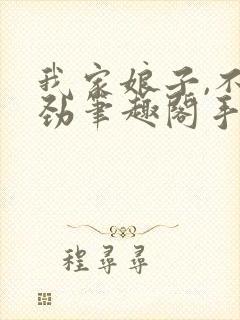 我家娘子,不
劲笔趣阁手
程寻寻